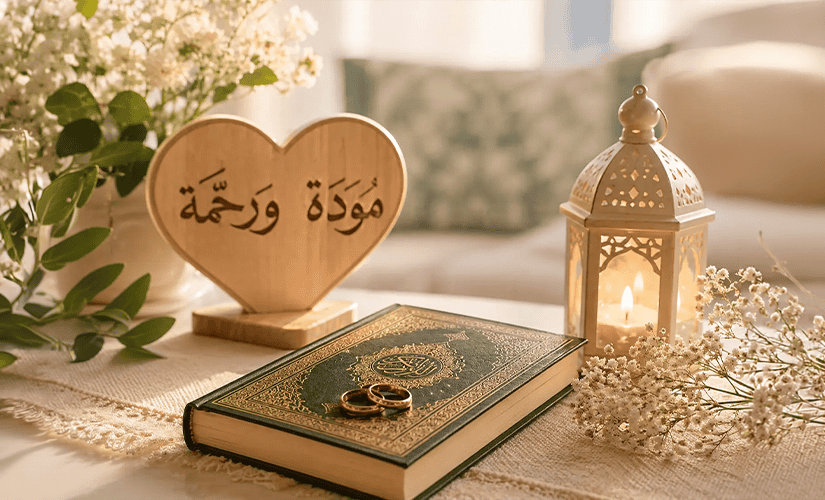 مُوَدَة وَرحَّمة